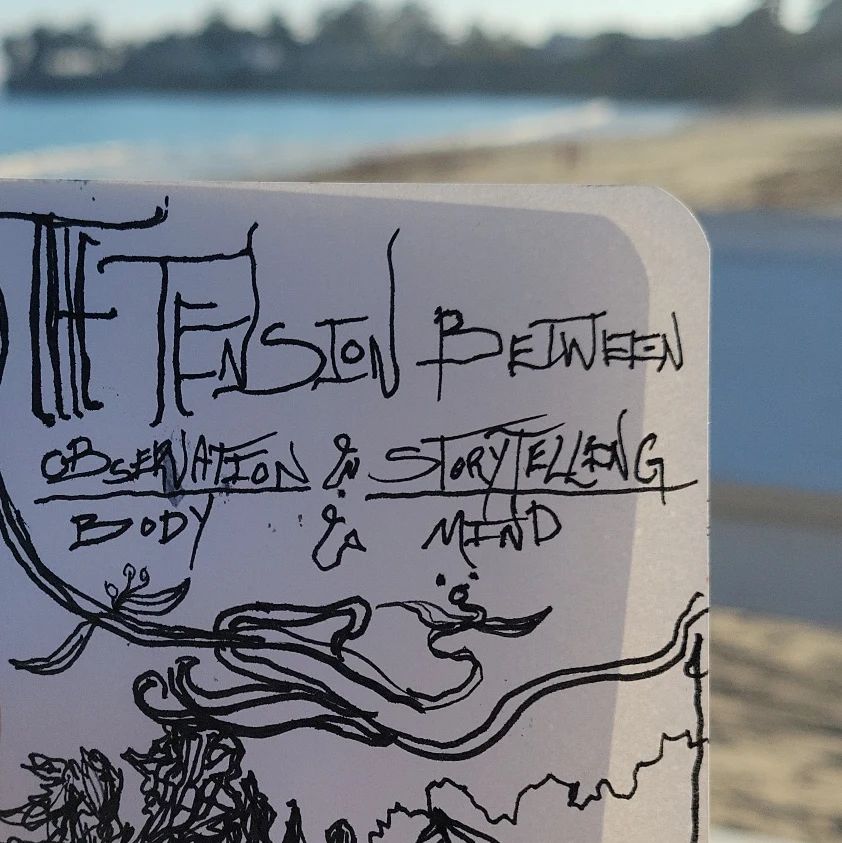 THE TENSION BETWEEN
OBSERVATION & STORYTELLING
BODY & MIND